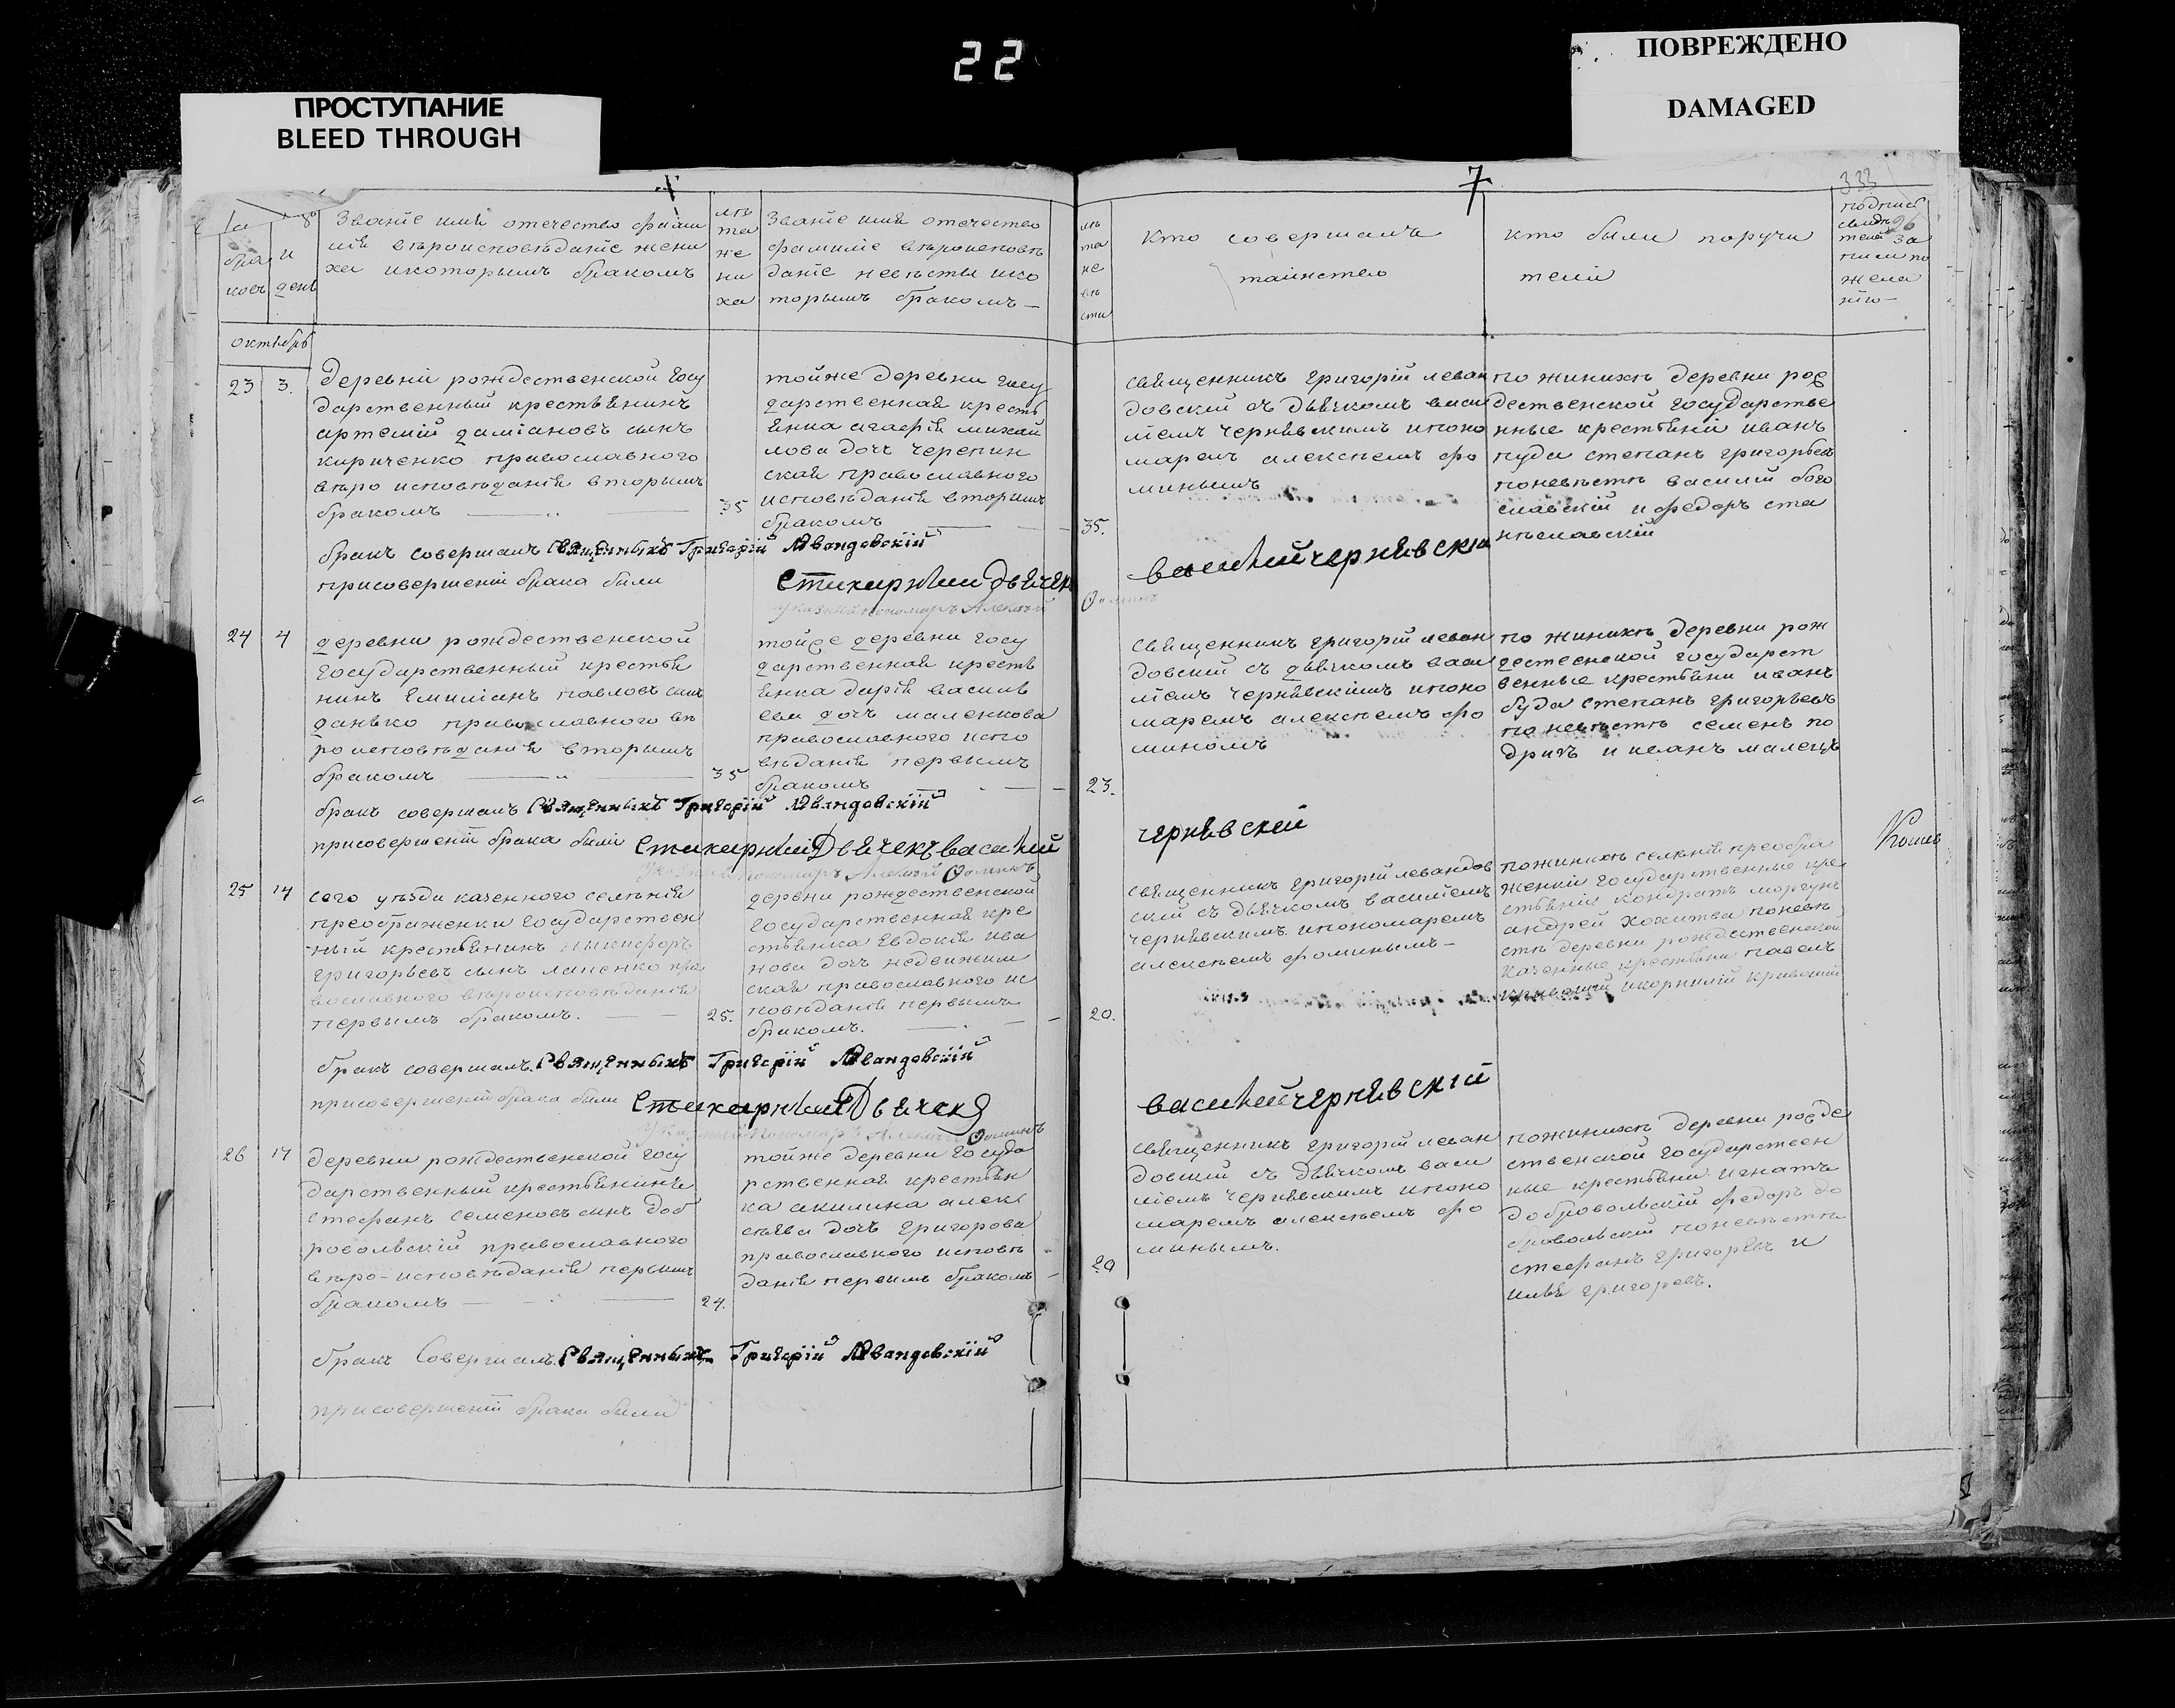 22
ПРОСТУПАНИЕ
BLEED THROUGH
ПОВРЕЖДЕНО
DAMAGED
7
333
26
бра
ковъ
и
день
Званіе имя отечество фами
лія вѣроисповѣданіе жени
ха икоторымъ бракомъ
лѣ
та
же
ни
ха
Званіе имя отечество
фамиліе вѣроисповѣ
даніе невѣсты ико
торымъ бракомъ —
лѣ
та
не
вѣ
сты
кто совершалъ
таинство
кто были поручи
тели
подпись
свидѣ
телей за
писи по
жела
нію —
октябрь
23 3.
деревни рожденственской госу
дарственный крестьянинъ
артемій даміановъ сынъ
кириченко православного
вѣро исповѣданія вторымъ
бракомъ
35
тойже деревни госу
дарственная кресть
янка агафія михай
лова дочь черепин
ская православного
исповѣданія вторымъ
бракомъ
35.
священникъ григорій леван
довскій съ дьячкомъ васи
ліемъ чернявскимъ ипоно
маремъ алексѣемъ фо
минымъ
по женихѣ деревни рож
дественской государстве
нные крестьяни иванъ
пуда степанъ григорьевъ
поневѣстѣ василій бого
славскій и федоръ ста
ниславскій
бракъ совершалъ Священникъ Григорій Левандовскій
присовершеніи брака были Стихирный Дьячекъ василий чернявский
Указный пономарь Алексѣй Ѳоминъ
24 4
деревни рождественской
государственный крестья
нинъ Емиліанъ павловъ сынъ
данько православного вѣ
роисповѣданія вторымъ
бракомъ
35
тойже деревни госу
дарственная кресть
янка дарія василь
ева дочь маленкова
православного испо
вѣданія первымъ
бракомъ
23.
священникъ григорій леван
довскій съ дьячкомъ васи
ліемъ чернявскимъ ипоно
маремъ алексѣемъ фо
миномъ
по женихѣ деревни рож
дественской государст
венные крестьяни иванъ
буда степанъ григорьевъ
по невѣстѣ семенъ по
дризъ и иванъ малецъ
бракъ совершалъ Священникъ Григорій Левандовскій
присовершеніи брака были Стихирный Дьячекъ василий чернявский
Указный пономарь Алексѣй Ѳоминъ
25 14
сего уѣзда казенного селенія
преображенки государствен
ный крестьянинъ никифоръ
григорьевъ сынъ лапенко пра
вославного вѣроисповѣданія
первымъ бракомъ.
25.
деревни рождественской
государственная кре
стьянка Евдокія ива
нова дочь недвижим
ская православного ис
повѣданія первымъ
бракомъ.
20.
священникъ григорій левандов
скій съ дьячкомъ василіемъ
чернявскимъ ипономаремъ
алексѣемъ фоминымъ —
поженихѣ селенія преобра
женки государственные кре
стьяни кондратъ моргунъ
андрей поневѣ
стѣ деревни рождественской
казенные крестьяни павелъ
кривошій икорнилій кривошій
бракъ совершалъ Священникъ Григорій Левандовскій
присовершеніи брака были Стихирный Дьячекъ василий чернявский
Указный пономарь Алексѣй Ѳоминъ
26 17
деревни рождественской госу
дарственный крестьянинъ
стефанъ семеновъ сынъ доб
ровольскій православного
вѣро-исповѣданія первымъ
бракомъ
24.
тойже деревни госуда
рственная крестьян
ка акилина алек
сѣева дочь григорова
православного исповѣ
данія первымъ бракомъ
20
священникъ григорій леван
довскій съ дьячкомъ васи
ліемъ чернявскимъ ипоно
маремъ алексѣемъ фо
минымъ.
поженихѣ деревни рожде
ственской государствен
ные крестьяни игнатъ
добровольскій федоръ до
бровольскій поневѣстѣ
стефанъ григорьевъ и
илья григоревъ.
бракъ Совершалъ Священникъ Григорій Левандовскій
присовершеніи брака были